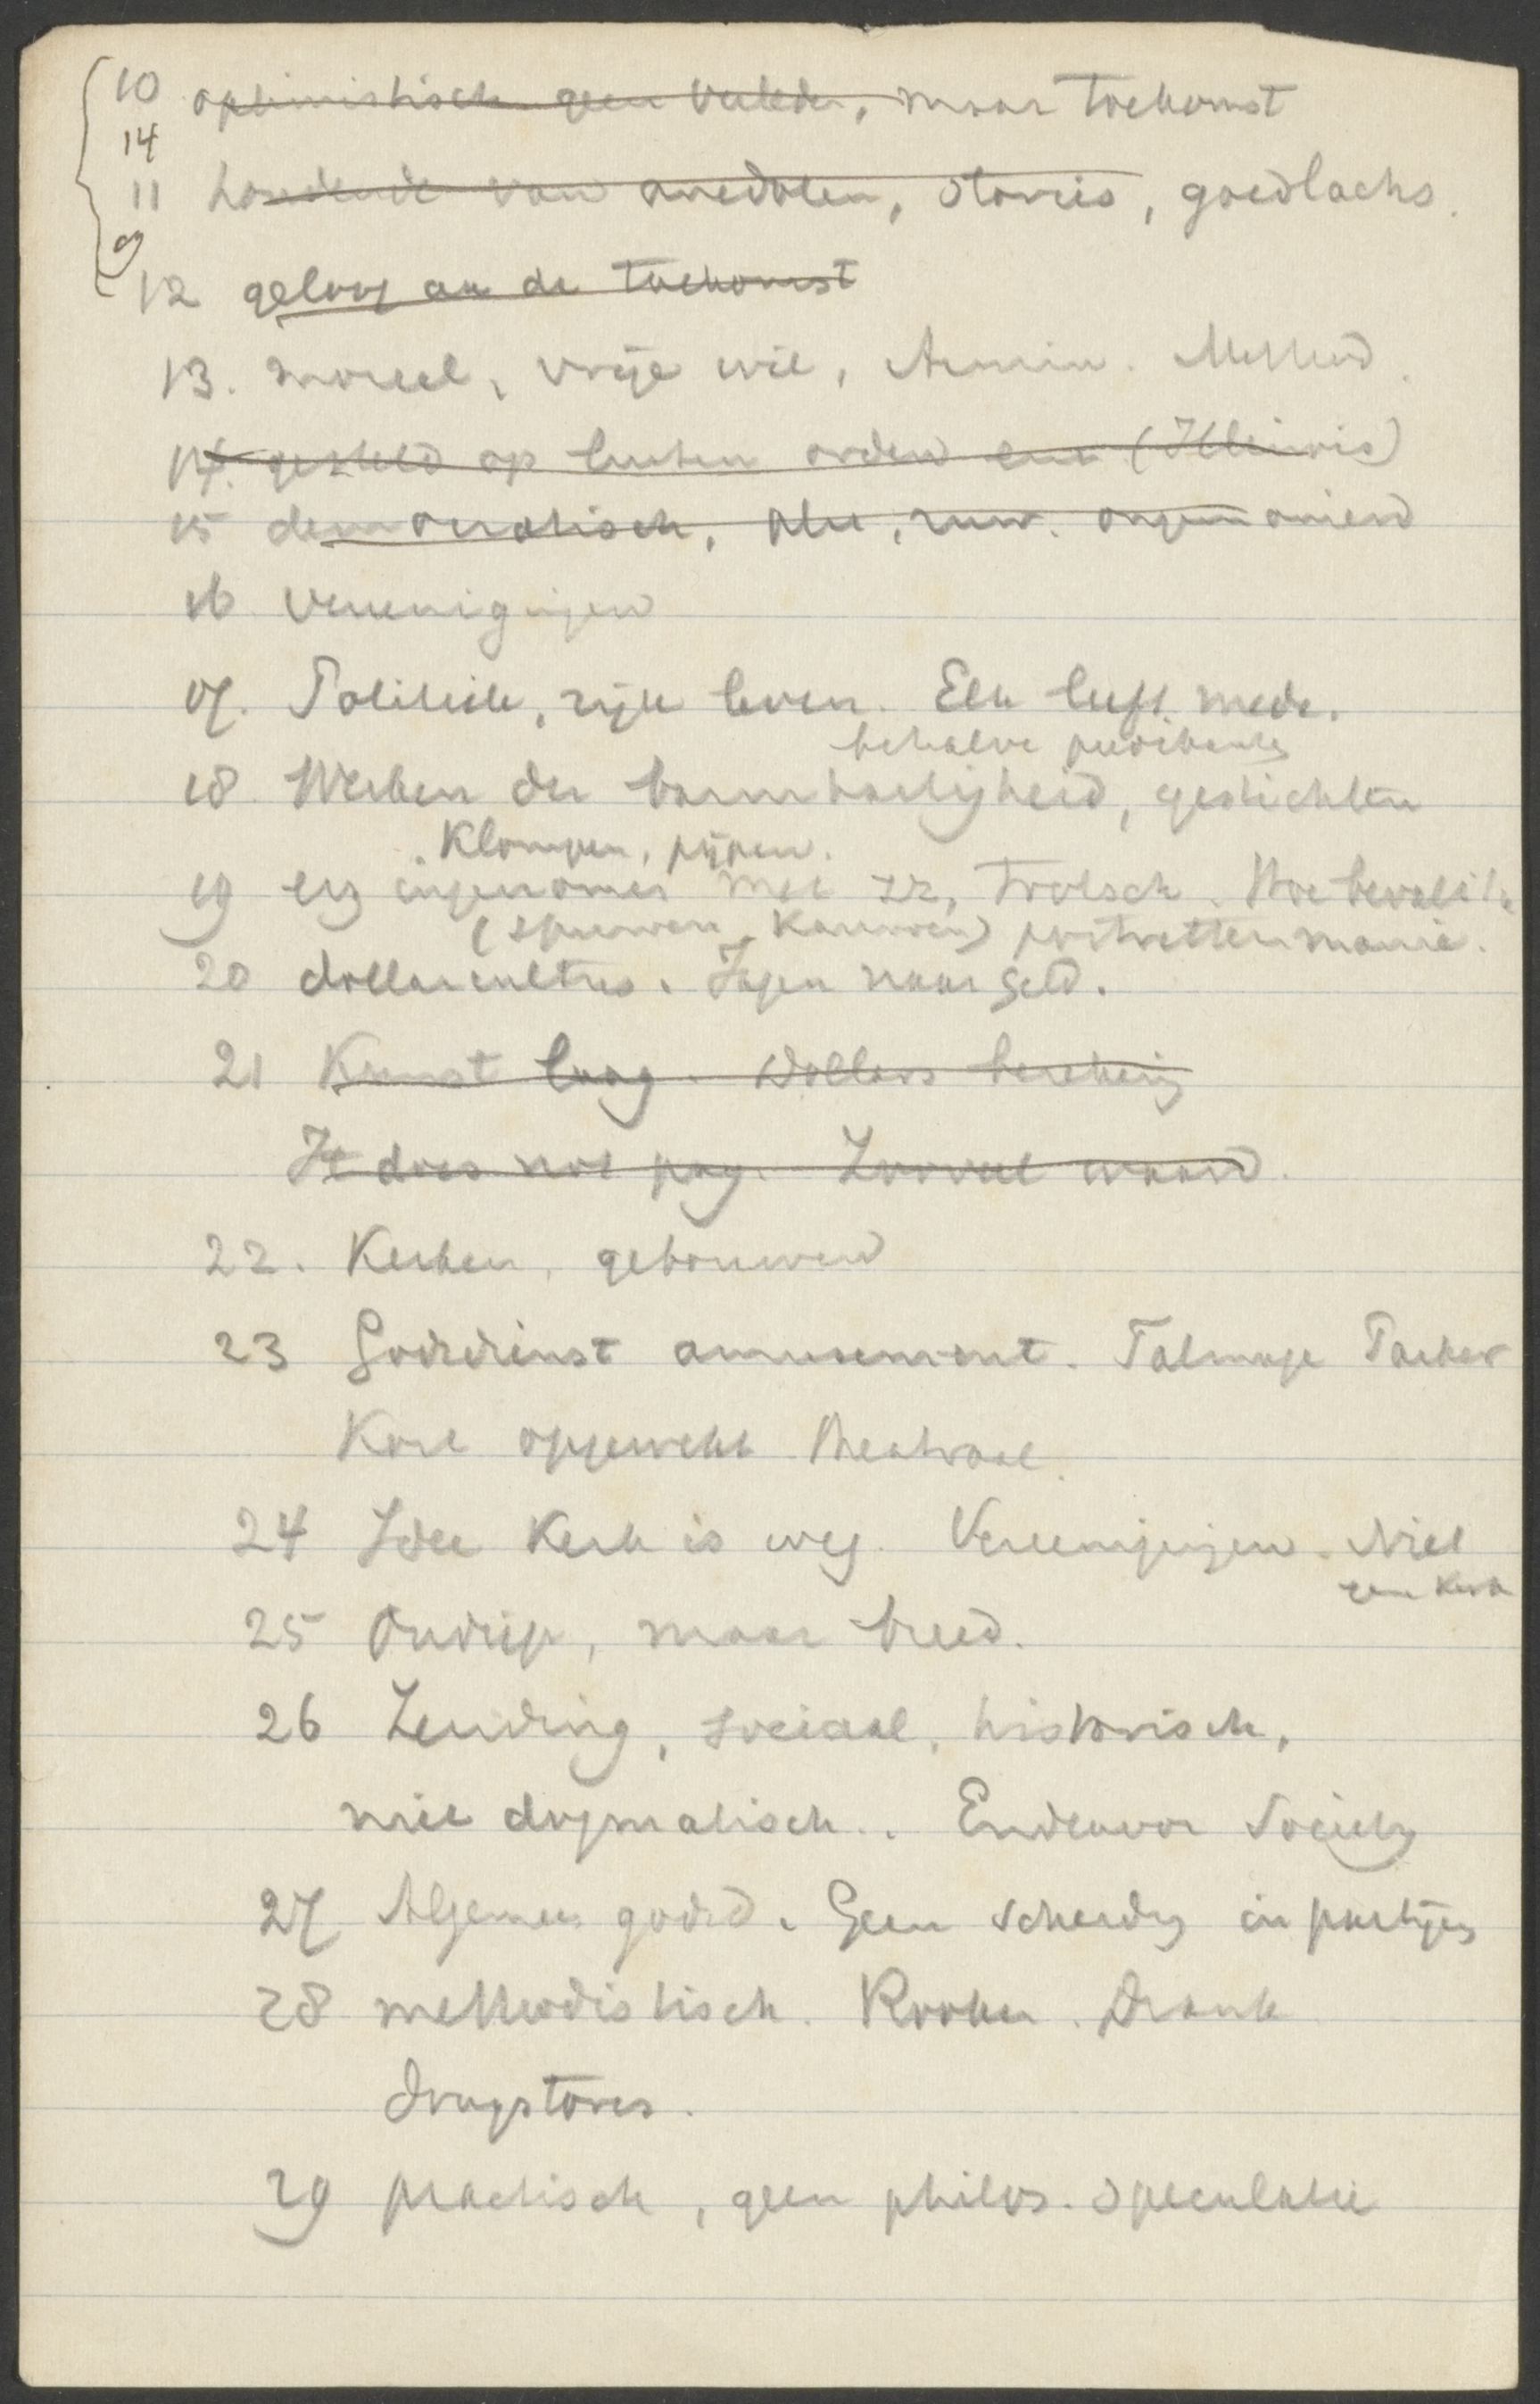 10 optimistisch geen verleden, maar toekomst
14
11 houdende van anecdoten, stories, goedlachs.
9
12 geloof aan de toekomst
13. moreel, vrije wil, Armin. Method.
14. gesteld op buiten orden enz (Illinois)
15 democratisch, plat, ruw. ongemanierd
16 Vereenigingen
17. Politiek, rijk leven. Elk leeft mede.
behalve
18. Werken der barmhartigheid, gestichten
Klompen, pijpen.
19 erg ingenomen met zz, trotsch. Hoe bevalt 't
(spuwen, kauwen) portrettenmanie.
20 dollarcultus. Jagen naar geld.
21 Kunst laag. Dollars berekening
It does not pay. Zooveel waard.
22. Kerken, gebouwen
23 Godsdienst amusement. Talmage Parker
Kort opgewekt theatraal.
24 Idee Kerk is weg. Vereenigingen. Niet
een Kerk
25 Ondiep, maar breed.
26 Zending, sociaal, historisch,
niet dogmatisch.. Endeavor Society
27 Algemeen godsd. Geen scheiding in partijen
28 methodistisch. Rooken. Drank
drugstores.
29 practisch, geen philos. speculatie